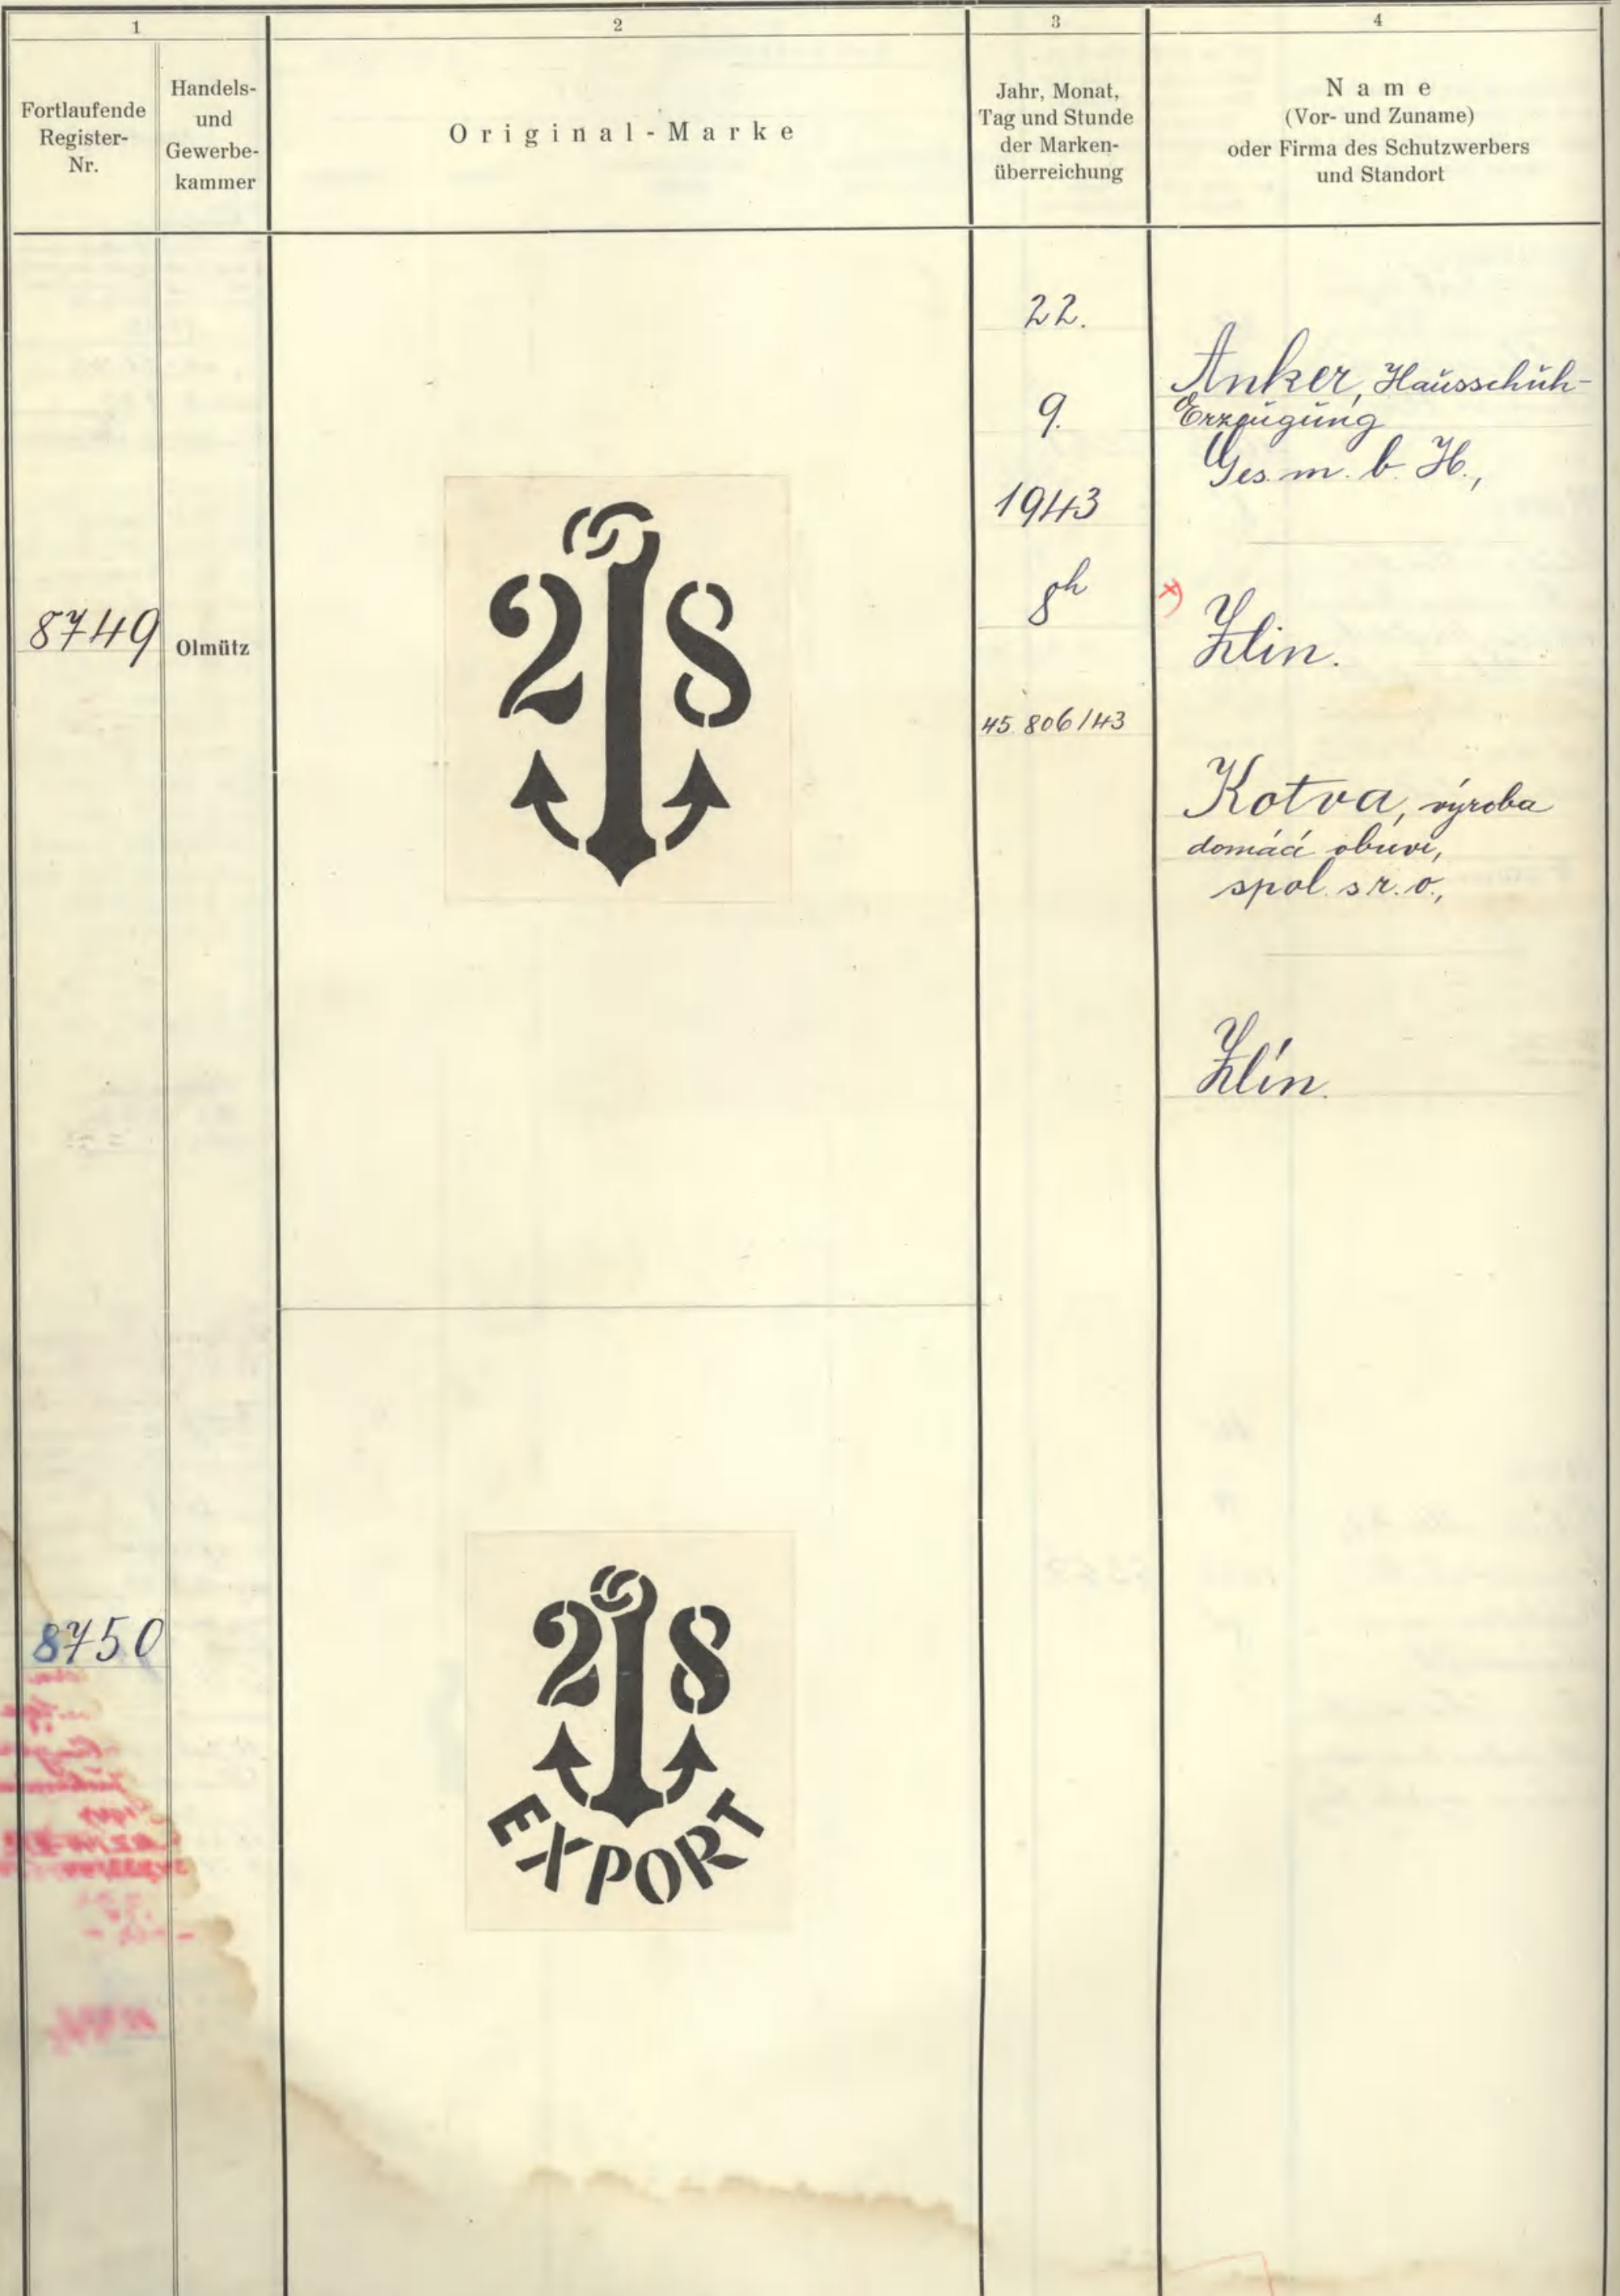 1
2
3
4
Fortlaufende
Register-
Nr.
Handels-
und
Gewerbe-
kammer
Original-Marke
Jahr, Monat,
Tag und Stunde
der Marken-
überreichung
Name
(Vor- und Zuname)
oder Firma des Schutzwerbers
und Standort
8749
Olmütz
2 8
22.
9.
1943
8h
45.806/43
Anker, Hausschuh-
Erzeugung
Ges. m. b. H.,
x)
Zlin.
Kotva, výroba
domácí obuvi,
spol. s r. o.,
Zlín.
8750
2 8
EXPORT